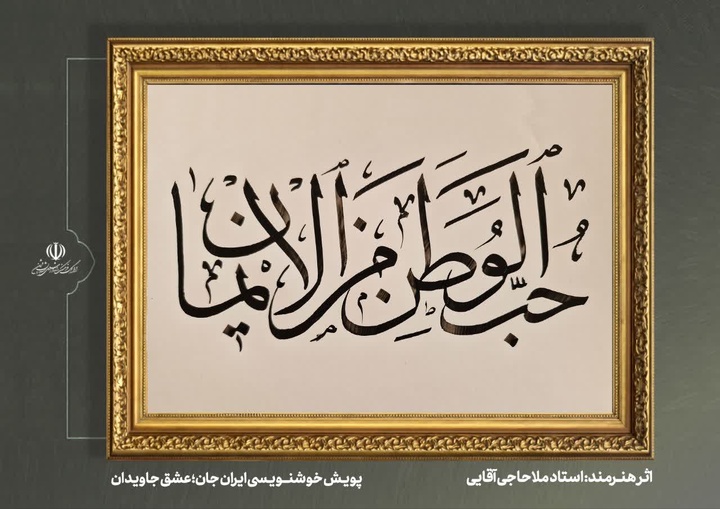 حبّ الوطن من الایمان
اثر هنرمند: استاد ملا حاجی آقایی
پویش خوشنویسی ایران جان؛ عشق جاویدان